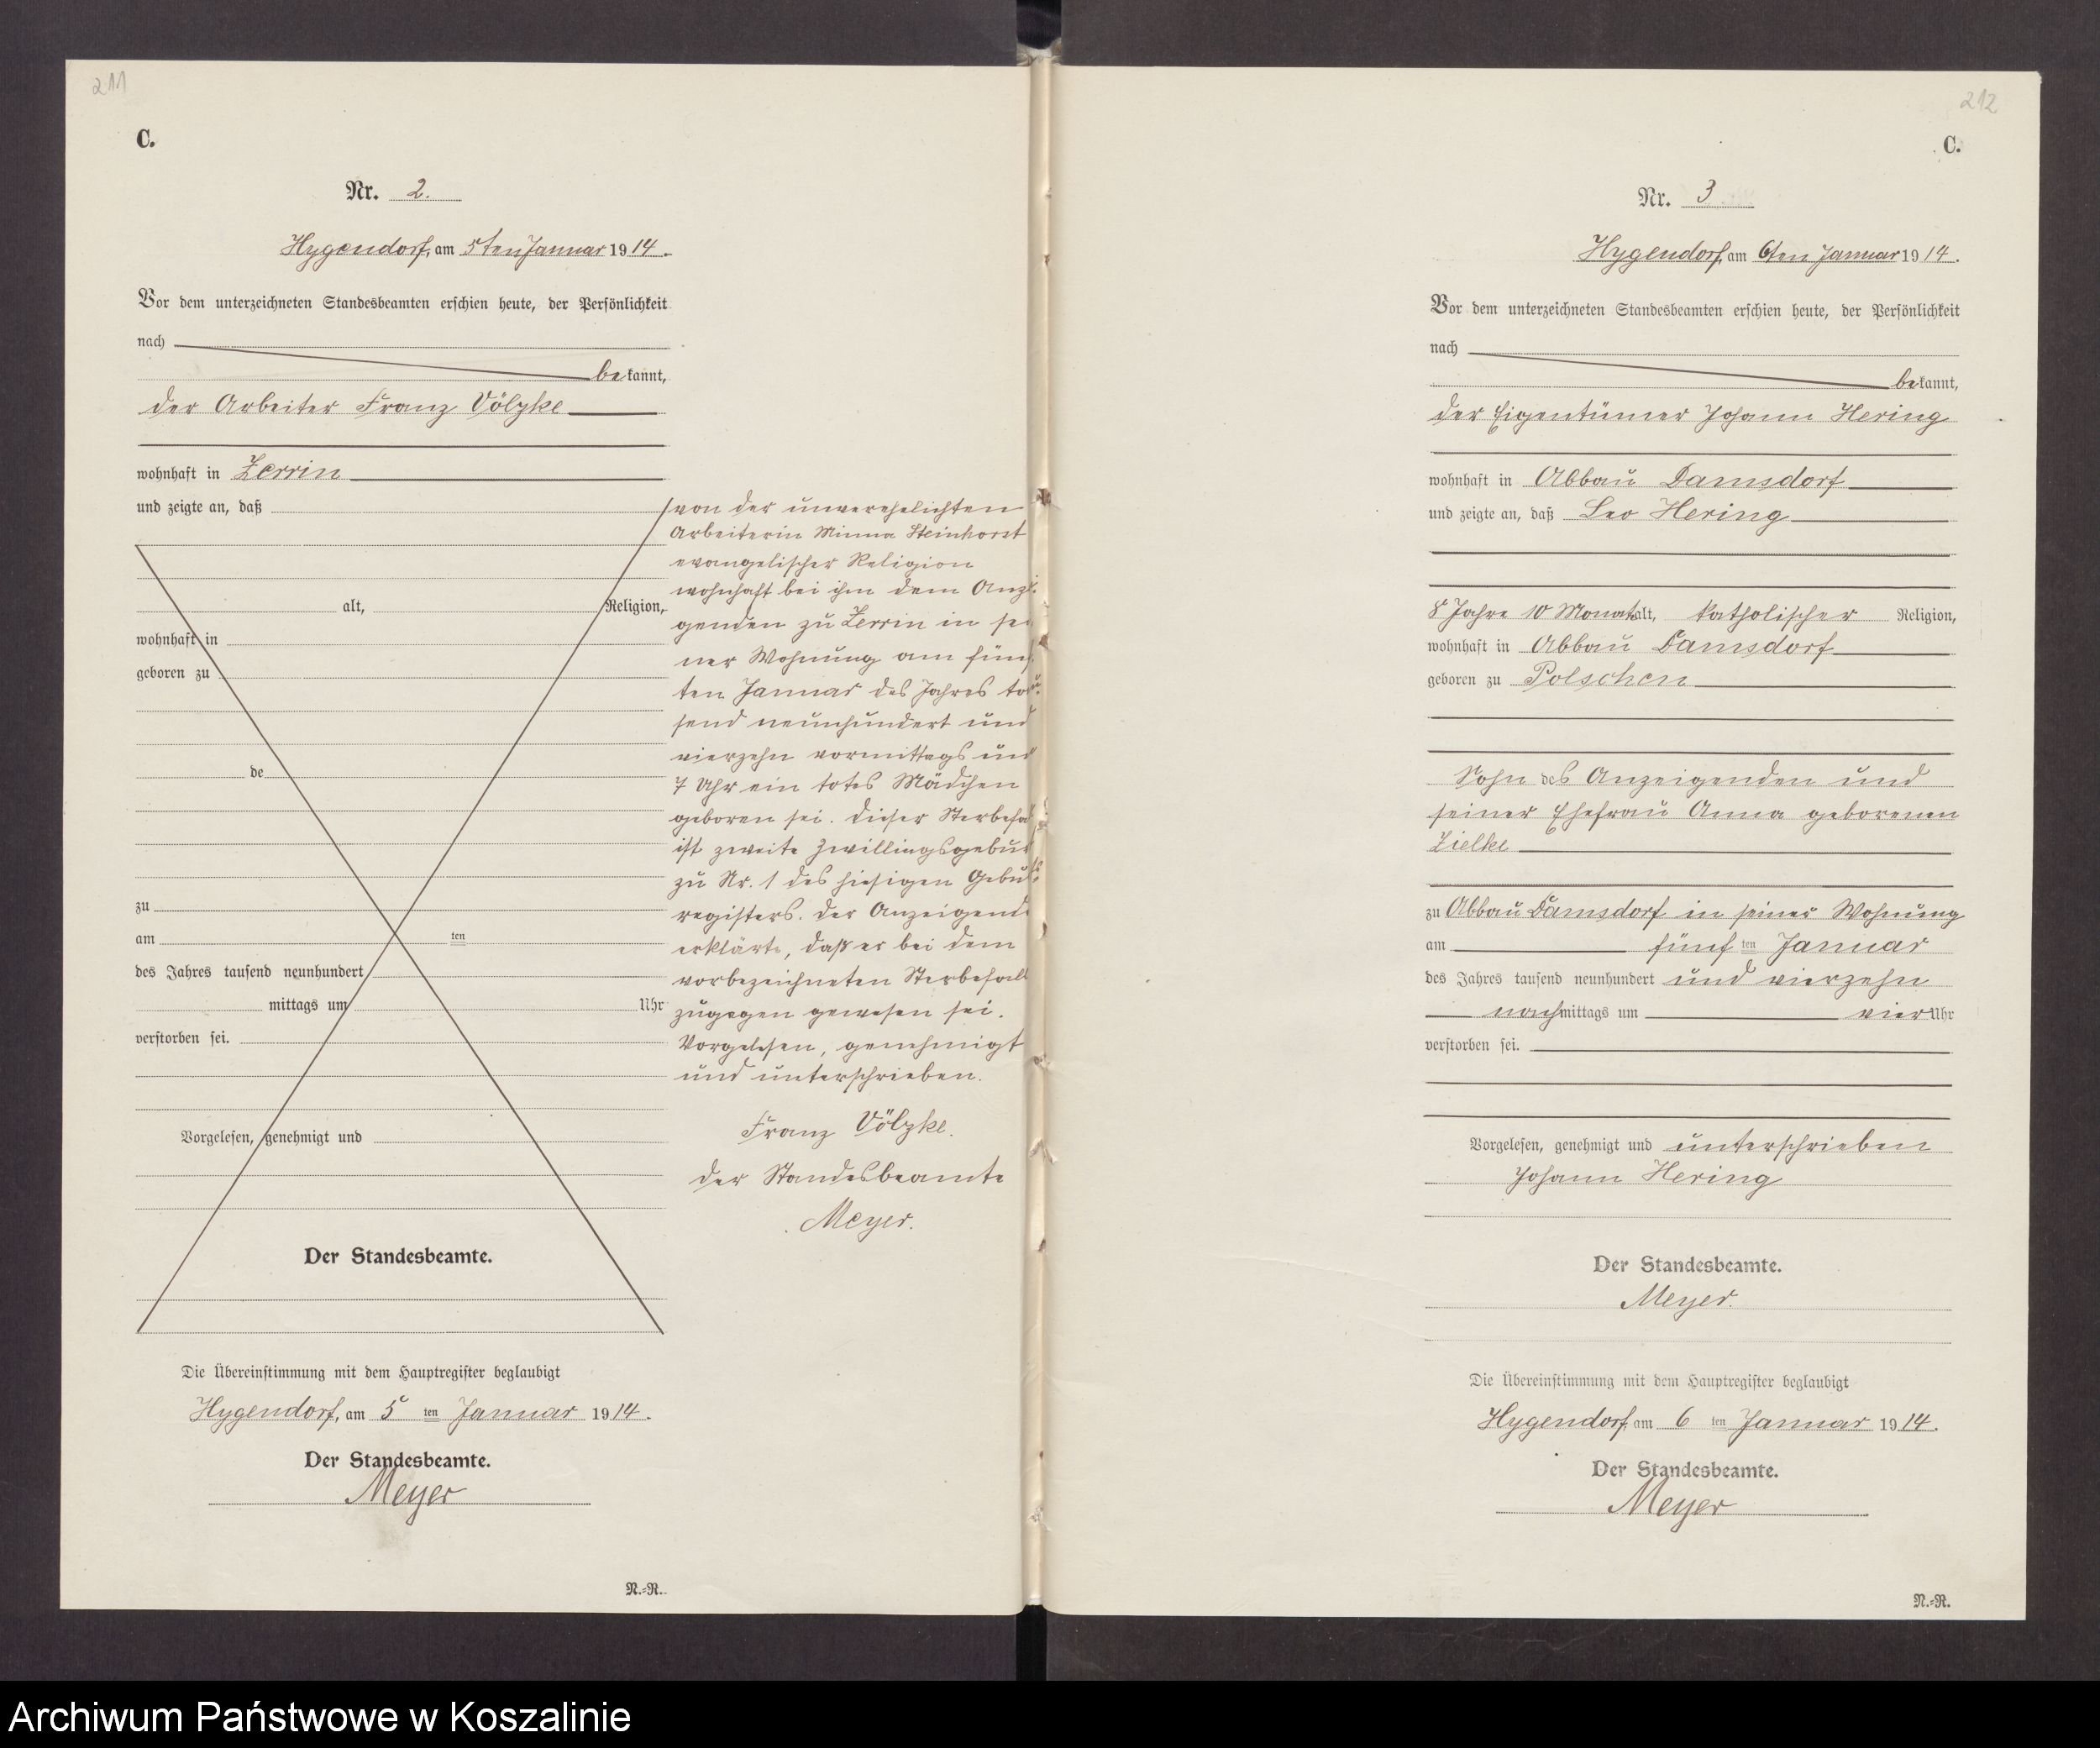 211
C.
Nr. 2.
Hygendorf, am 5ten Januar 1914.
Vor dem unterzeichneten Standesbeamten erschien heute, der Persönlichkeit
nach
bekannt,
der Arbeiter Franz Völzke
wohnhaft in Zerrin
und zeigte an, daß
alt, Religion,
wohnhaft in
geboren zu
de
zu
am ten
des Jahres tausend neunhundert
mittags um Uhr
verstorben sei.
Vorgelesen, genehmigt und
Der Standesbeamte.
von der unverehelichten
Arbeiterin Minna Steinhorst
evangelischer Religion
wohnhaft bei ihm dem Anzei
genden zu Zerrin in sei
ner Wohnung am fünf
ten Januar des Jahres tau
send neunhundert und
vierzehn vormittags um
7 Uhr ein totes Mädchen
geboren sei. Dieser Sterbefall
ist zweite Zwillingsgeburt
zu Nr. 1 des hiesigen Geburts
registers. Der Anzeigende
erklärte, daß er bei dem
vorbezeichneten Sterbefall
zugegen gewesen sei.
Vorgelesen, genehmigt
und unterschrieben.
Franz Völzke.
Der Standesbeamte
Meyer.
Die Übereinstimmung mit dem Hauptregister beglaubigt
Hygendorf, am 5 ten Januar 1914.
Der Standesbeamte.
Meyer
N.-R.
212
C.
Nr. 3
Hygendorf, am 6ten Januar 1914.
Vor dem unterzeichneten Standesbeamten erschien heute, der Persönlichkeit
nach
bekannt,
der Eigentümer Johann Hering
wohnhaft in Abbau Damsdorf
und zeigte an, daß Leo Hering
8 Jahre 10 Monate alt, katholischer Religion,
wohnhaft in Abbau Damsdorf
geboren zu Polschen
Sohn des Anzeigenden und
seiner Ehefrau Anna geborenen
Zielke
zu Abbau Damsdorf in seiner Wohnung
am fünf ten Januar
des Jahres tausend neunhundert und vierzehn
nachmittags um vier Uhr
verstorben sei.
Vorgelesen, genehmigt und unterschrieben
Johann Hering
Der Standesbeamte.
Meyer.
Die Übereinstimmung mit dem Hauptregister beglaubigt
Hygendorf, am 6 ten Januar 1914.
Der Standesbeamte.
Meyer
N.-R.
Archiwum Państwowe w Koszalinie